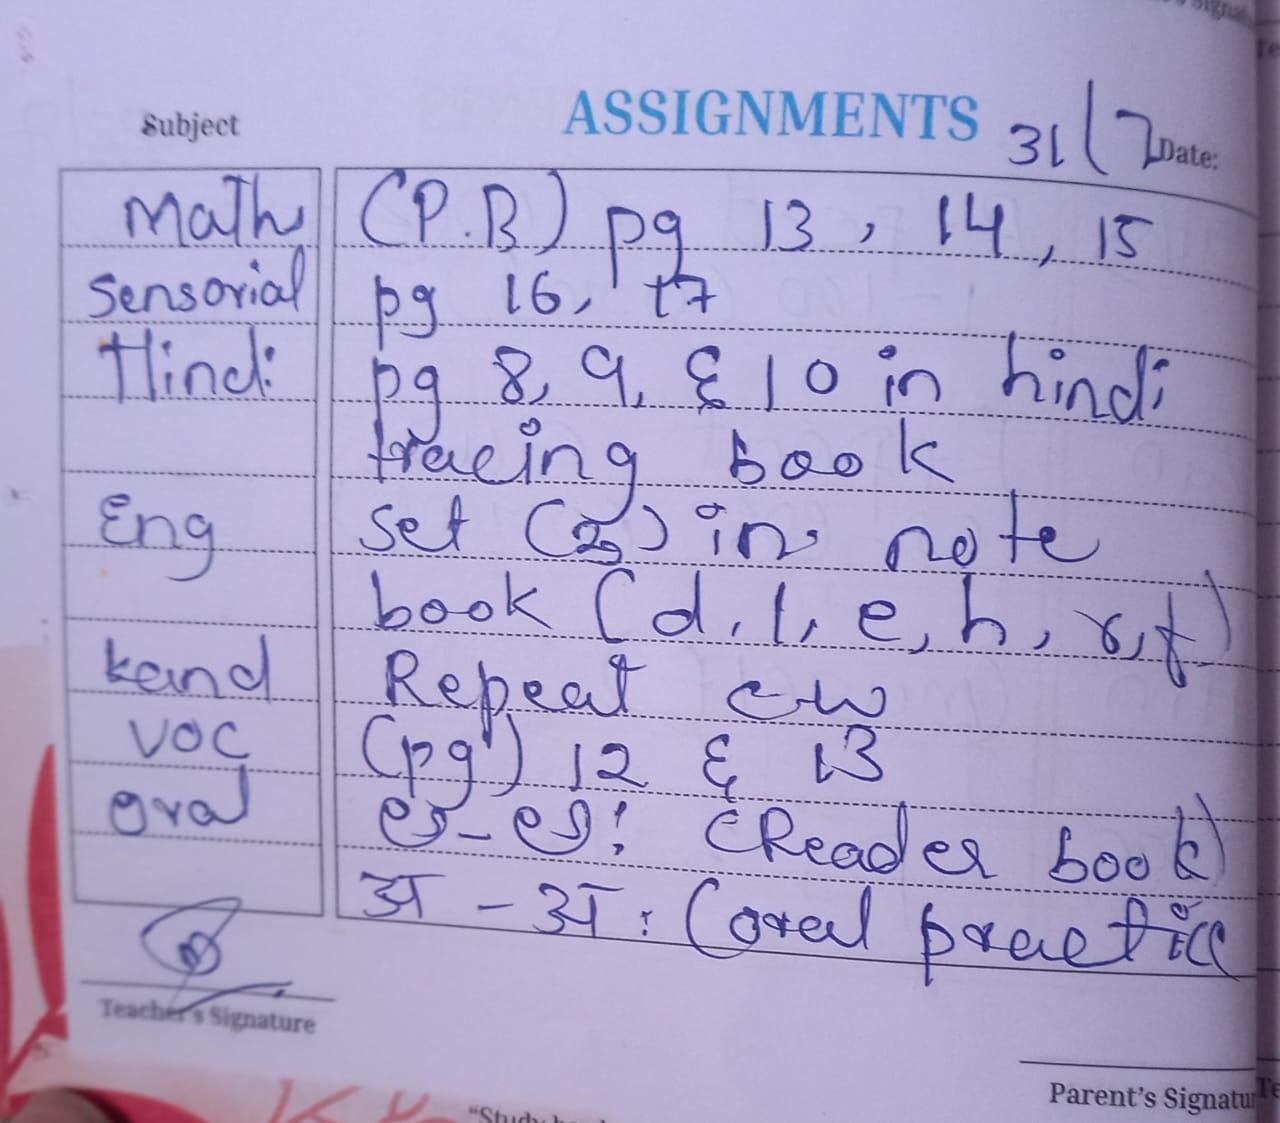 Subject ASSIGNMENTS 31/7 Date:
Math (P.B) pg 13, 14, 15
Sensorial pg 16, 17
Hindi pg 8, 9, & 10 in hindi
tracing book
Eng set (2) in note
book (d, l, e, h, r, f)
kand Repeat cw
VOC (pg) 12 & 13
oral ಅ-ಅಃ (Reader book)
अ - अः (oral practice
Teacher's Signature
Parent's Signatur
"Study